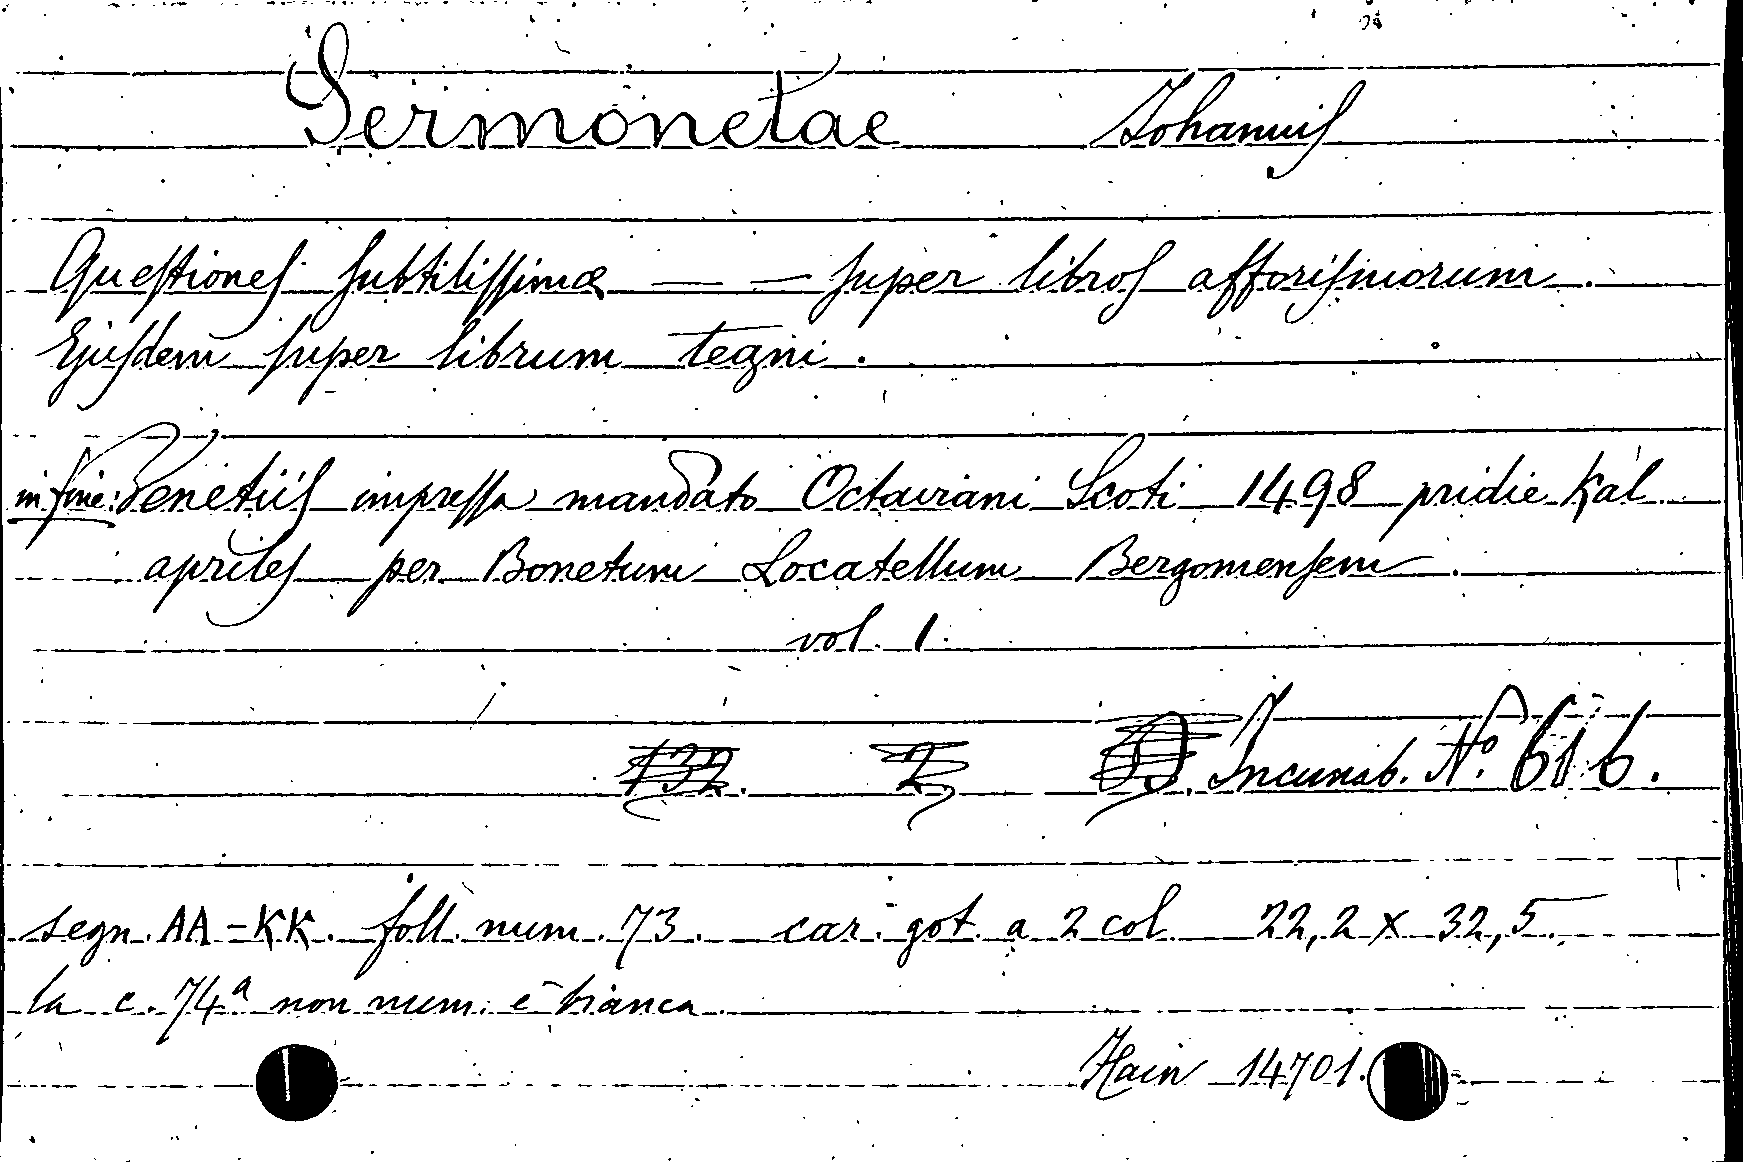 Sermonetae Johannis
Questiones subtilissimæ — — super libros afforismorum.
Ejusdem super librum tegni.
in fine: Venetiis impressa mandato Octaviani Scoti 1498 pridie Kal
apriles per Bonetum Locatellum Bergomensem.
vol. 1.
132. 2 Incunab. Nº. 616.
segn. AA-KK. foll. num. 73. car. got. a 2 col. 22,2 x 32,5.
la c. 74ª non num. è bianca.
Hain 14701.